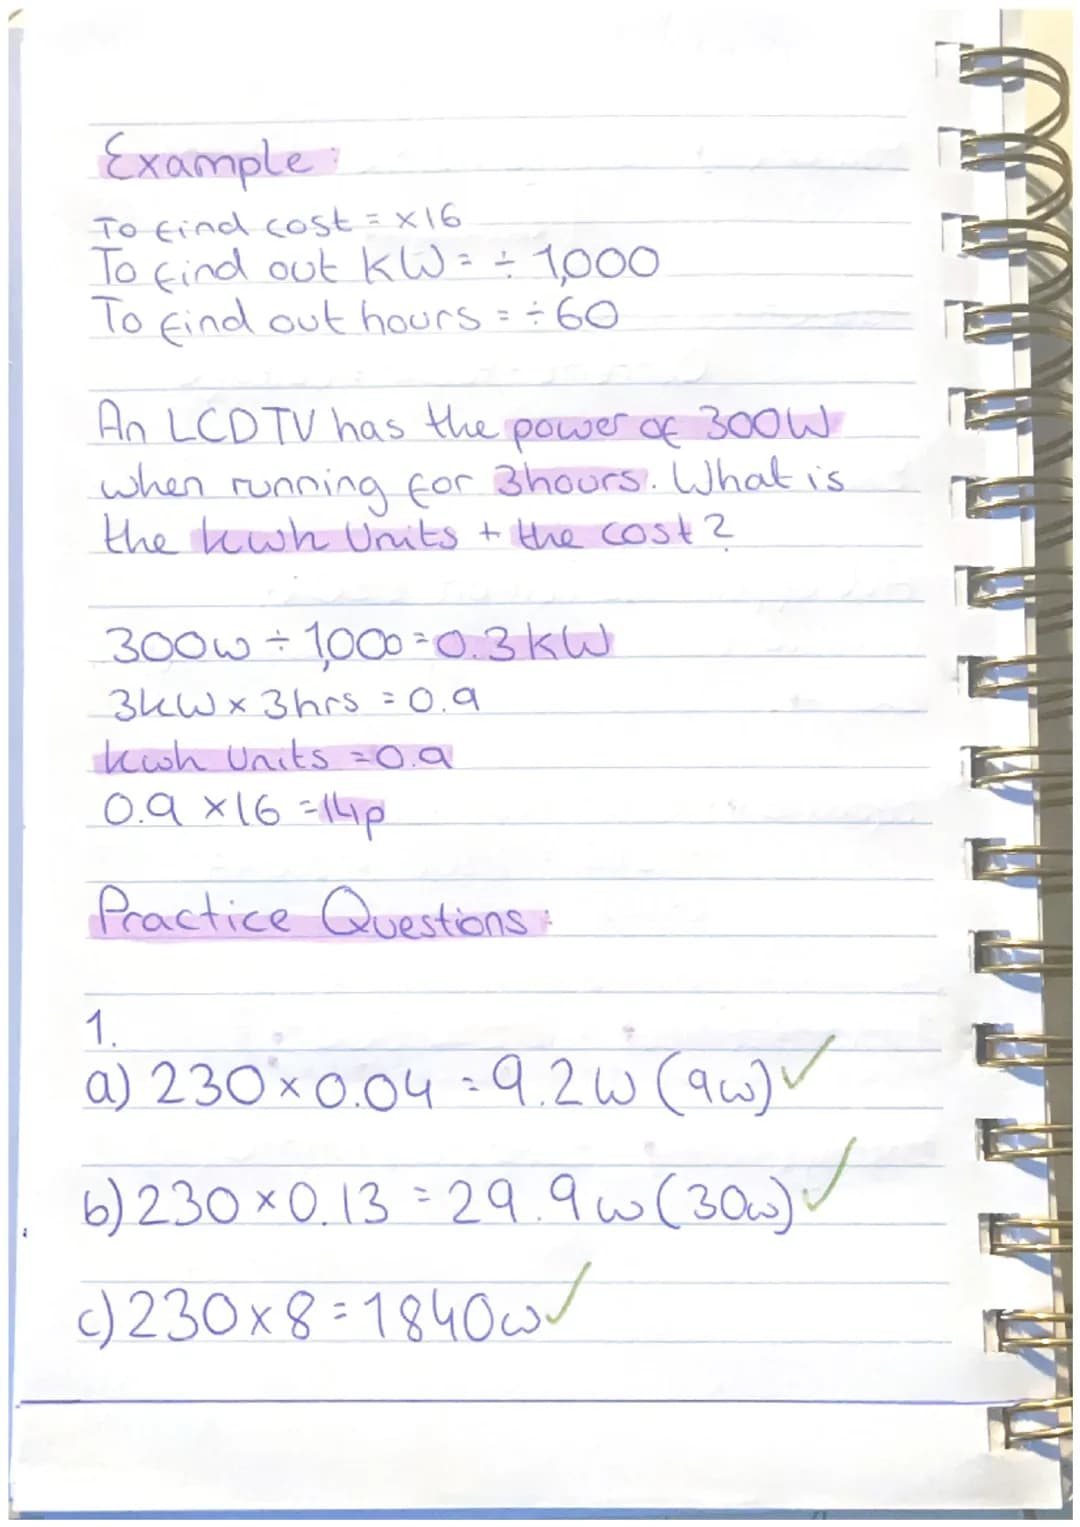 Example:
To find cost = x16
To find out kW = ÷ 1,000
To find out hours = ÷60
An LCD TV has the power of 300W
when running for 3hours. What is
the kwh Units + the cost?
300w ÷ 1,000 = 0.3kW
3kW x 3hrs = 0.9
kwh Units = 0.9
0.9 x16 = 14p
Practice Questions:
1.
a) 230 x 0.04 = 9.2w (9w) ✓
b) 230 x 0.13 = 29.9w (30w) ✓
c) 230 x 8 = 1840w ✓